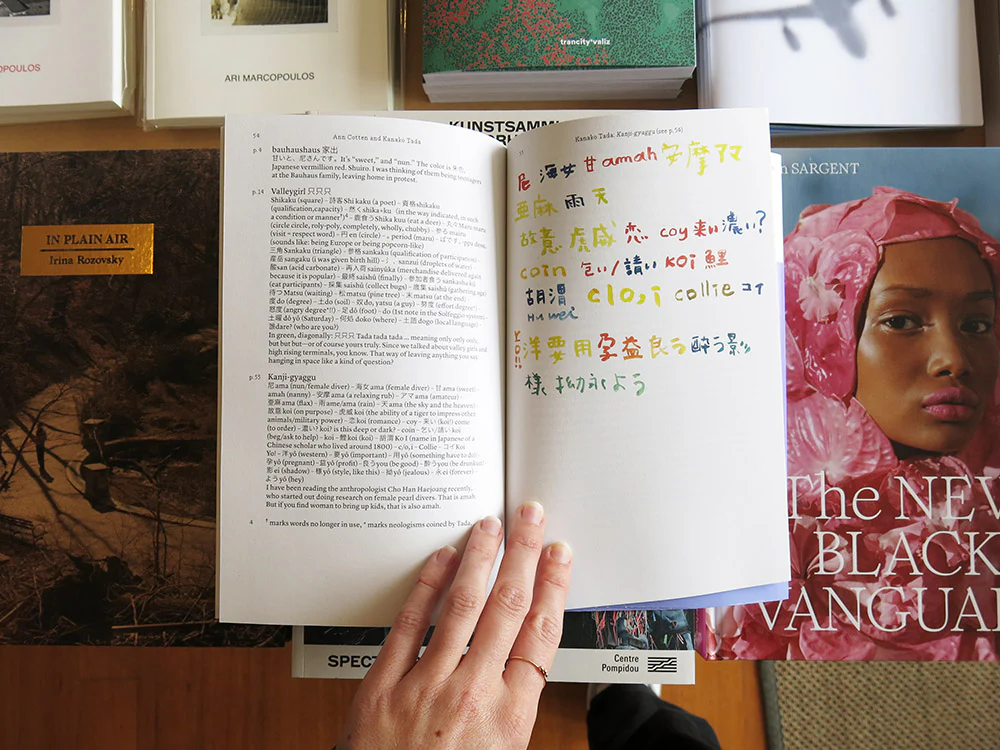 OPOULOS
ARI MARCOPOULOS
trancity*valiz
KUNSTSAMML
n SARGENT
IN PLAIN AIR
Irina Rozovsky
54
Ann Cotten and Kanako Tada
p.4 bauhaushaus 家出
甘いと、尼さんです。It's "sweet," and "nun." The color is 朱色,
Japanese vermillion red. Shuiro. I was thinking of them being teenagers
at the Bauhaus family, leaving home in protest.
p.14 Valleygirl 只只只
Shikaku (square) – 詩客 Shi kaku (a poet) – 資格 shikaku
(qualification, capacity) – 然く shika+ku (in the way indicated, in such
a condition or manner†)⁴ – 鹿食う Shika kuu (eat a deer) – 丸々 Maru maru
(circle circle, roly-poly, completely, wholly, chubby) – 参る mairu
(visit = respect word) – 円 en (circle) –
period (maru) – ぱです。
(sounds like: being Europe or being popcorn-like)
三角 Sankaku (triangle) – 参格 sankaku (qualification of participation) –
産岳 sangaku (i was given birth hill) –
sanzui (droplets of water) –
酸 san (acid carbonate) – 再入荷 sainyūka (merchandise delivered again
because it is popular) – 最終 saishū (finally) – 参加者食う sankasha kū
(eat participants) – 採集 saishū (collect bugs) – 歳集 saishū (gathering age)
待つ Matsu (waiting) – 松 matsu (pine tree) – 末 matsu (at the end)
度 do (degree) – 土 do (soil) – 奴 do, yatsu (a guy) – 努 do (effort degree*) –
怒度 (angry degree*!!) – 足 dô (foot) – do (1st note in the Solfeggio system)
土曜 dô yô (Saturday) – 何処 doko (where) – 土語 dogo (local language) –
誰 dare? (who are you?)
In green, diagonally: 只只只 Tada tada tada ... meaning only only only,
but but but – or of course yours truly. Since we talked about valley girls and
high rising terminals, you know. That way of leaving anything you say
hanging in space like a kind of question?
p.55 Kanji-gyaggu
尼 ama (nun/female diver) – 海女 ama (female diver) – 甘 ama (sweet) –
amah (nanny) – 安摩 ama (a relaxing rub) – アマ ama (amateur)
亜麻 ama (flax) – 雨 ame/ama (rain) – 天 ama (the sky and the heaven)
故意 koi (on purpose) – 虎威 koi (the ability of a tiger to impress other
animals/military power) – 恋 koi (romance) – coy – 来い (koi!) come
(to order) – 濃い? koi? is this deep or dark? – coin – 乞い/請い koi
(beg/ask to help) – koi – 鯉 koi (koi) – 胡渭 Ko I (name in Japanese of a
Chinese scholar who lived around 1800) – c/o, i – Collie – コイ Koi
Yo! – 洋 yô (western) – 要 yô (important) – 用 yô (something have to do) –
孕 yô (pregnant) – 益 yô (profit) – 良う you (be good) – 酔う you (be drunken)
影 ei (shadow) – 様 yô (style, like this) – 拗 yô (jealous) – 永 ei (forever) –
よう yô (hey)
I have been reading the anthropologist Cho Han Haejoang recently,
who started out doing research on female pearl divers. That is amah.
But if you find woman to bring up kids, that is also amah.
4 † marks words no longer in use, * marks neologisms coined by Tada.
Kanako Tada: Kanji-gyaggu (see p.54)
尼 海女 甘 amah 安摩 アマ
亜麻 雨 天
故意 虎威 恋 coy 来い 濃い?
coin 乞い/請い koi 鯉
胡渭 c/o, i collie コイ
Hu wei
Yo!! 洋 要 用 孕 益 良う 酔う 影
様 拗 永 よう
The NEW
BLACK
VANGUA
SPECT
Centre
Pompidou